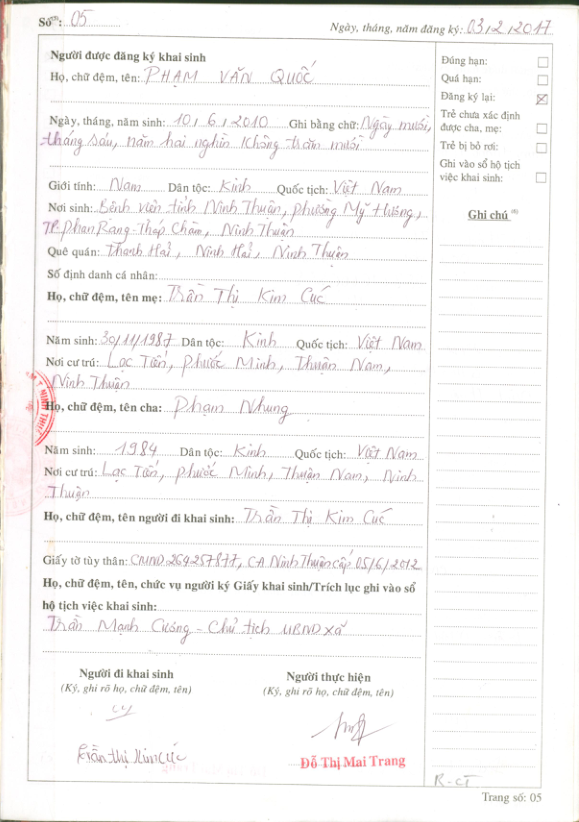 Số⁽³⁾: 05
Ngày, tháng, năm đăng ký: 03/2/2017
Người được đăng ký khai sinh
Họ, chữ đệm, tên: PHẠM VĂN QUỐC
Ngày, tháng, năm sinh: 10/6/2010 Ghi bằng chữ: Ngày mười,
tháng sáu, năm hai nghìn không trăm mười
Giới tính: Nam Dân tộc: Kinh Quốc tịch: Việt Nam
Nơi sinh: Bệnh viện tỉnh Ninh Thuận, phường Mỹ Hương,
TP. Phan Rang-Tháp Chàm, Ninh Thuận
Quê quán: Thanh Hải, Ninh Hải, Ninh Thuận
Số định danh cá nhân:
Họ, chữ đệm, tên mẹ: Trần Thị Kim Cúc
Năm sinh: 30/11/1987 Dân tộc: Kinh Quốc tịch: Việt Nam
Nơi cư trú: Lạc Tiến, Phước Minh, Thuận Nam,
Ninh Thuận
Họ, chữ đệm, tên cha: Phạm Nhung
Năm sinh: 1984 Dân tộc: Kinh Quốc tịch: Việt Nam
Nơi cư trú: Lạc Tiến, Phước Minh, Thuận Nam, Ninh
Thuận
Họ, chữ đệm, tên người đi khai sinh: Trần Thị Kim Cúc
Giấy tờ tùy thân: CMND: 264257877, CA Ninh Thuận cấp 05/6/2012
Họ, chữ đệm, tên, chức vụ người ký Giấy khai sinh/Trích lục ghi vào sổ
hộ tịch việc khai sinh:
Trần Mạnh Cường - Chủ tịch UBND xã
Người đi khai sinh
(Ký, ghi rõ họ, chữ đệm, tên)
Trần Thị Kim Cúc
Người thực hiện
(Ký, ghi rõ họ, chữ đệm, tên)
Đỗ Thị Mai Trang
Đúng hạn:
Quá hạn:
Đăng ký lại:
Trẻ chưa xác định
được cha, mẹ:
Trẻ bị bỏ rơi:
Ghi vào sổ hộ tịch
việc khai sinh:
Ghi chú
R-CT
Trang số: 05